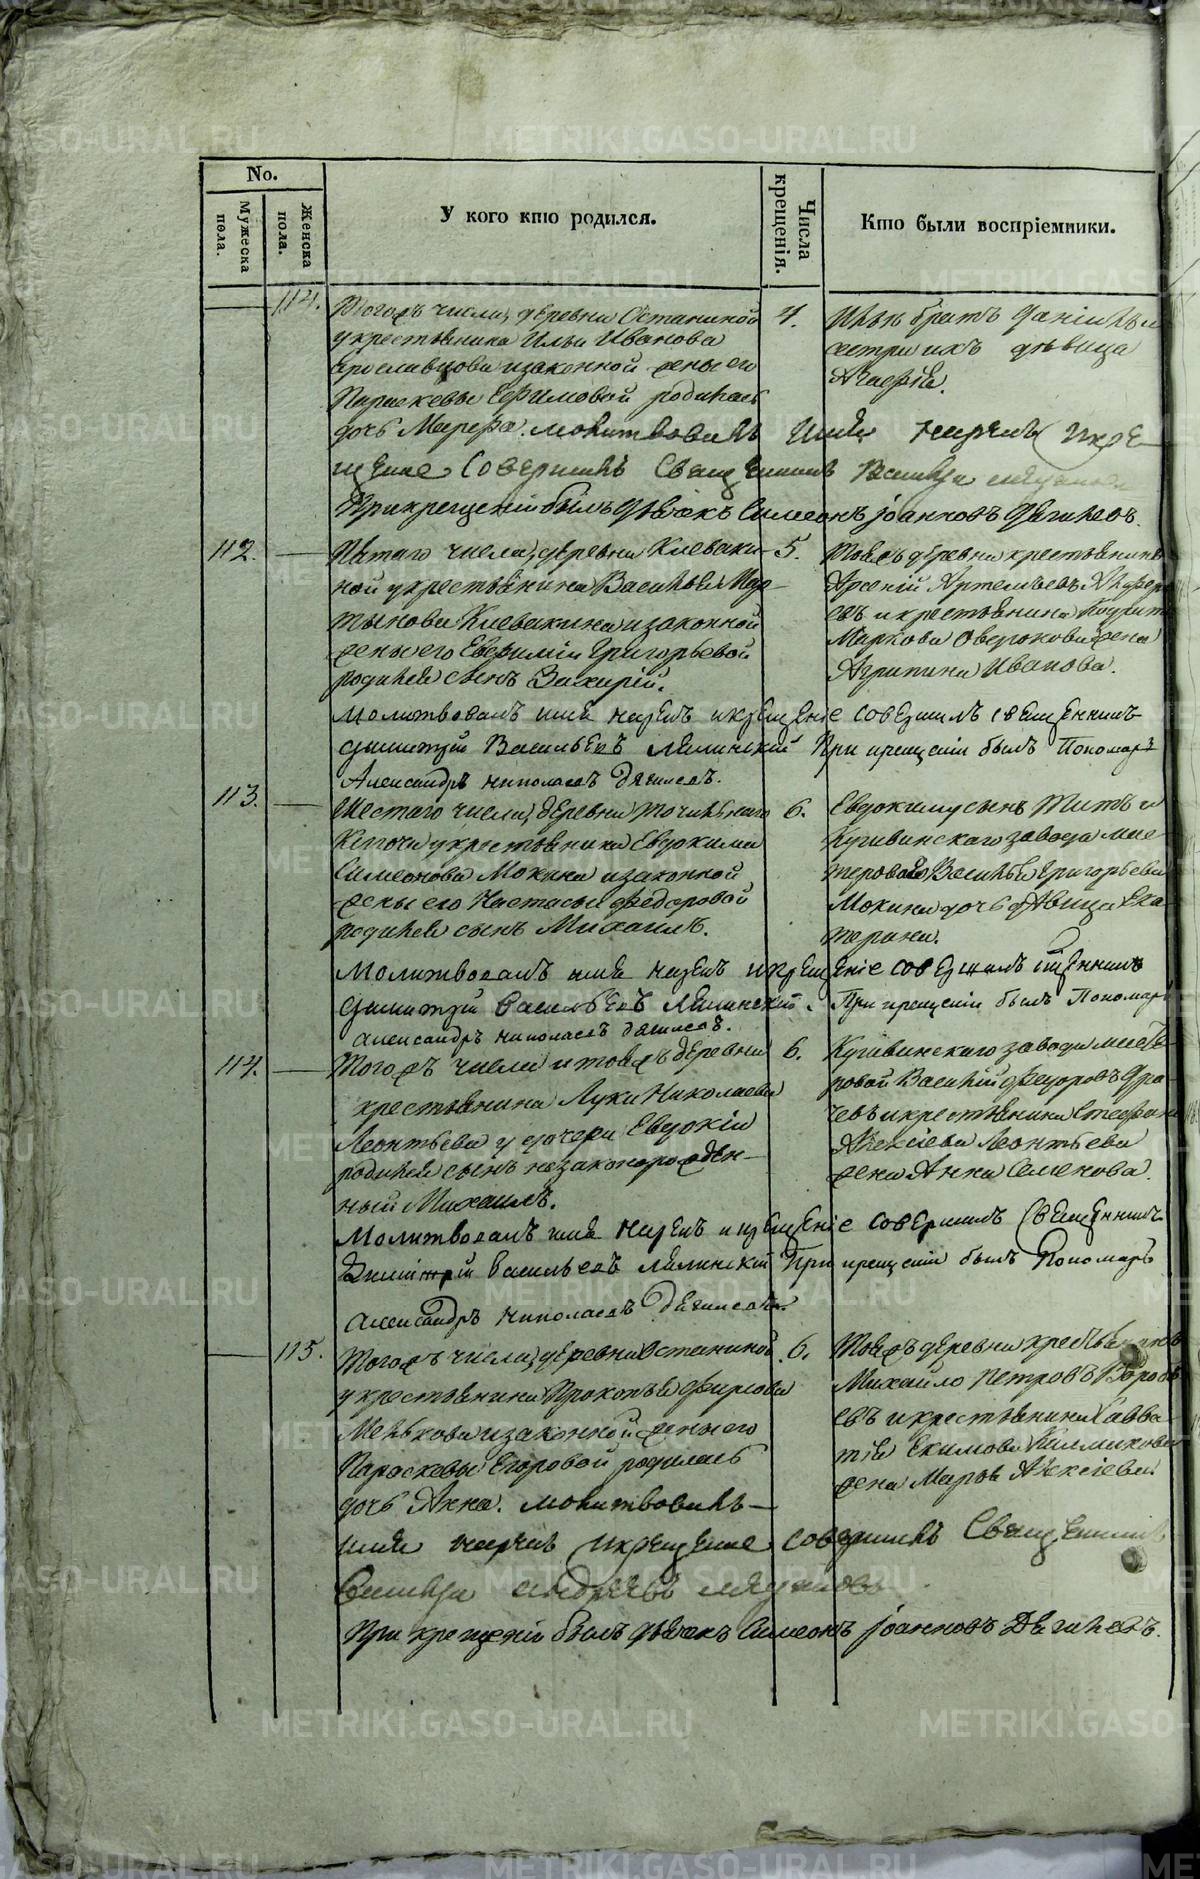 No.
Мужеска пола.
Женска пола.
У кого кто родился.
Числа крещенія.
Кто были воспріемники.
114.
Тогожъ числа, деревни Останиной
у крестьянина Ильи Иванова
Ярославцова и законной жены его
Параскевы Ефимовой родилась
дочь Марфа. молитвовалъ имя нарекъ и кре-
щение Совершилъ Священникъ
При крещеніи былъ дьячекъ Симеонъ Іоанновъ Дягилевъ.
4.
Ильи братъ Даніилъ и
сестра ихъ дѣвица
Агафія.
112.
Пятаго числа, деревни Клеваки-
ной у крестьянина Василья Мар-
тынова Клевакина и законной
жены его Евфиміи Григорьевой
родился сынъ Захарій.
Молитвовалъ имя нарекъ и крещеніе совершилъ священникъ
Димитрій Васильевъ Лялинскій При крещеніи былъ Пономарь
Александръ Николаевъ Дягилевъ.
5.
Тояжъ деревни крестьянинъ
Арсеній Артемьевъ
евъ и крестьянина
Маркова жена
Агрипина Иванова.
113.
Шестаго числа, деревни Точильнаго
Ключа у крестьянина Евдокима
Симеонова Мокина и законной
жены его Настасьи Федоровой
родился сынъ Михаилъ.
Молитвовалъ имя нарекъ и крещеніе совершилъ священникъ
Димитрій Васильевъ Лялинскій. При крещеніи былъ Пономарь
Александръ Николаевъ Дягилевъ.
6.
Евдокима сынъ Титъ и
завода мас-
тероваго Василья Григорьева
Мокина дочь дѣвица Ека-
терина.
114.
Тогожъ числа и тояжъ деревни
крестьянина Луки Николаева
Леонтьева у дочери Евдокіи
родился сынъ незаконорожден-
ный Михаилъ.
Молитвовалъ имя нарекъ и крещеніе совершилъ Священникъ
Димитрій Васильевъ Лялинскій При крещеніи былъ Пономарь
Александръ Николаевъ Дягилевъ.
6.
завода масте-
ровой Василій Федоровъ Гра-
чевъ и крестьянина Стефана
Алексіева Леонтьева
жена Анна Семенова.
115.
Тогожъ числа, деревни Останиной
у крестьянина Прокопья Фирсова
Менькова и законной жены его
Параскевы Егоровой родилась
дочь Анна. молитвовалъ
имя нарекъ и крещение совершилъ Священникъ
Андреевъ
При крещеніи былъ дьячекъ Симеонъ Іоанновъ Дягилевъ.
6.
Тояжъ деревни крестьянинъ
Михайло Петровъ Воробь-
евъ и крестьянина Савва-
тія Екимова Калмакова
жена Марфа Алексіева.
METRIKI.GASO-URAL.RU